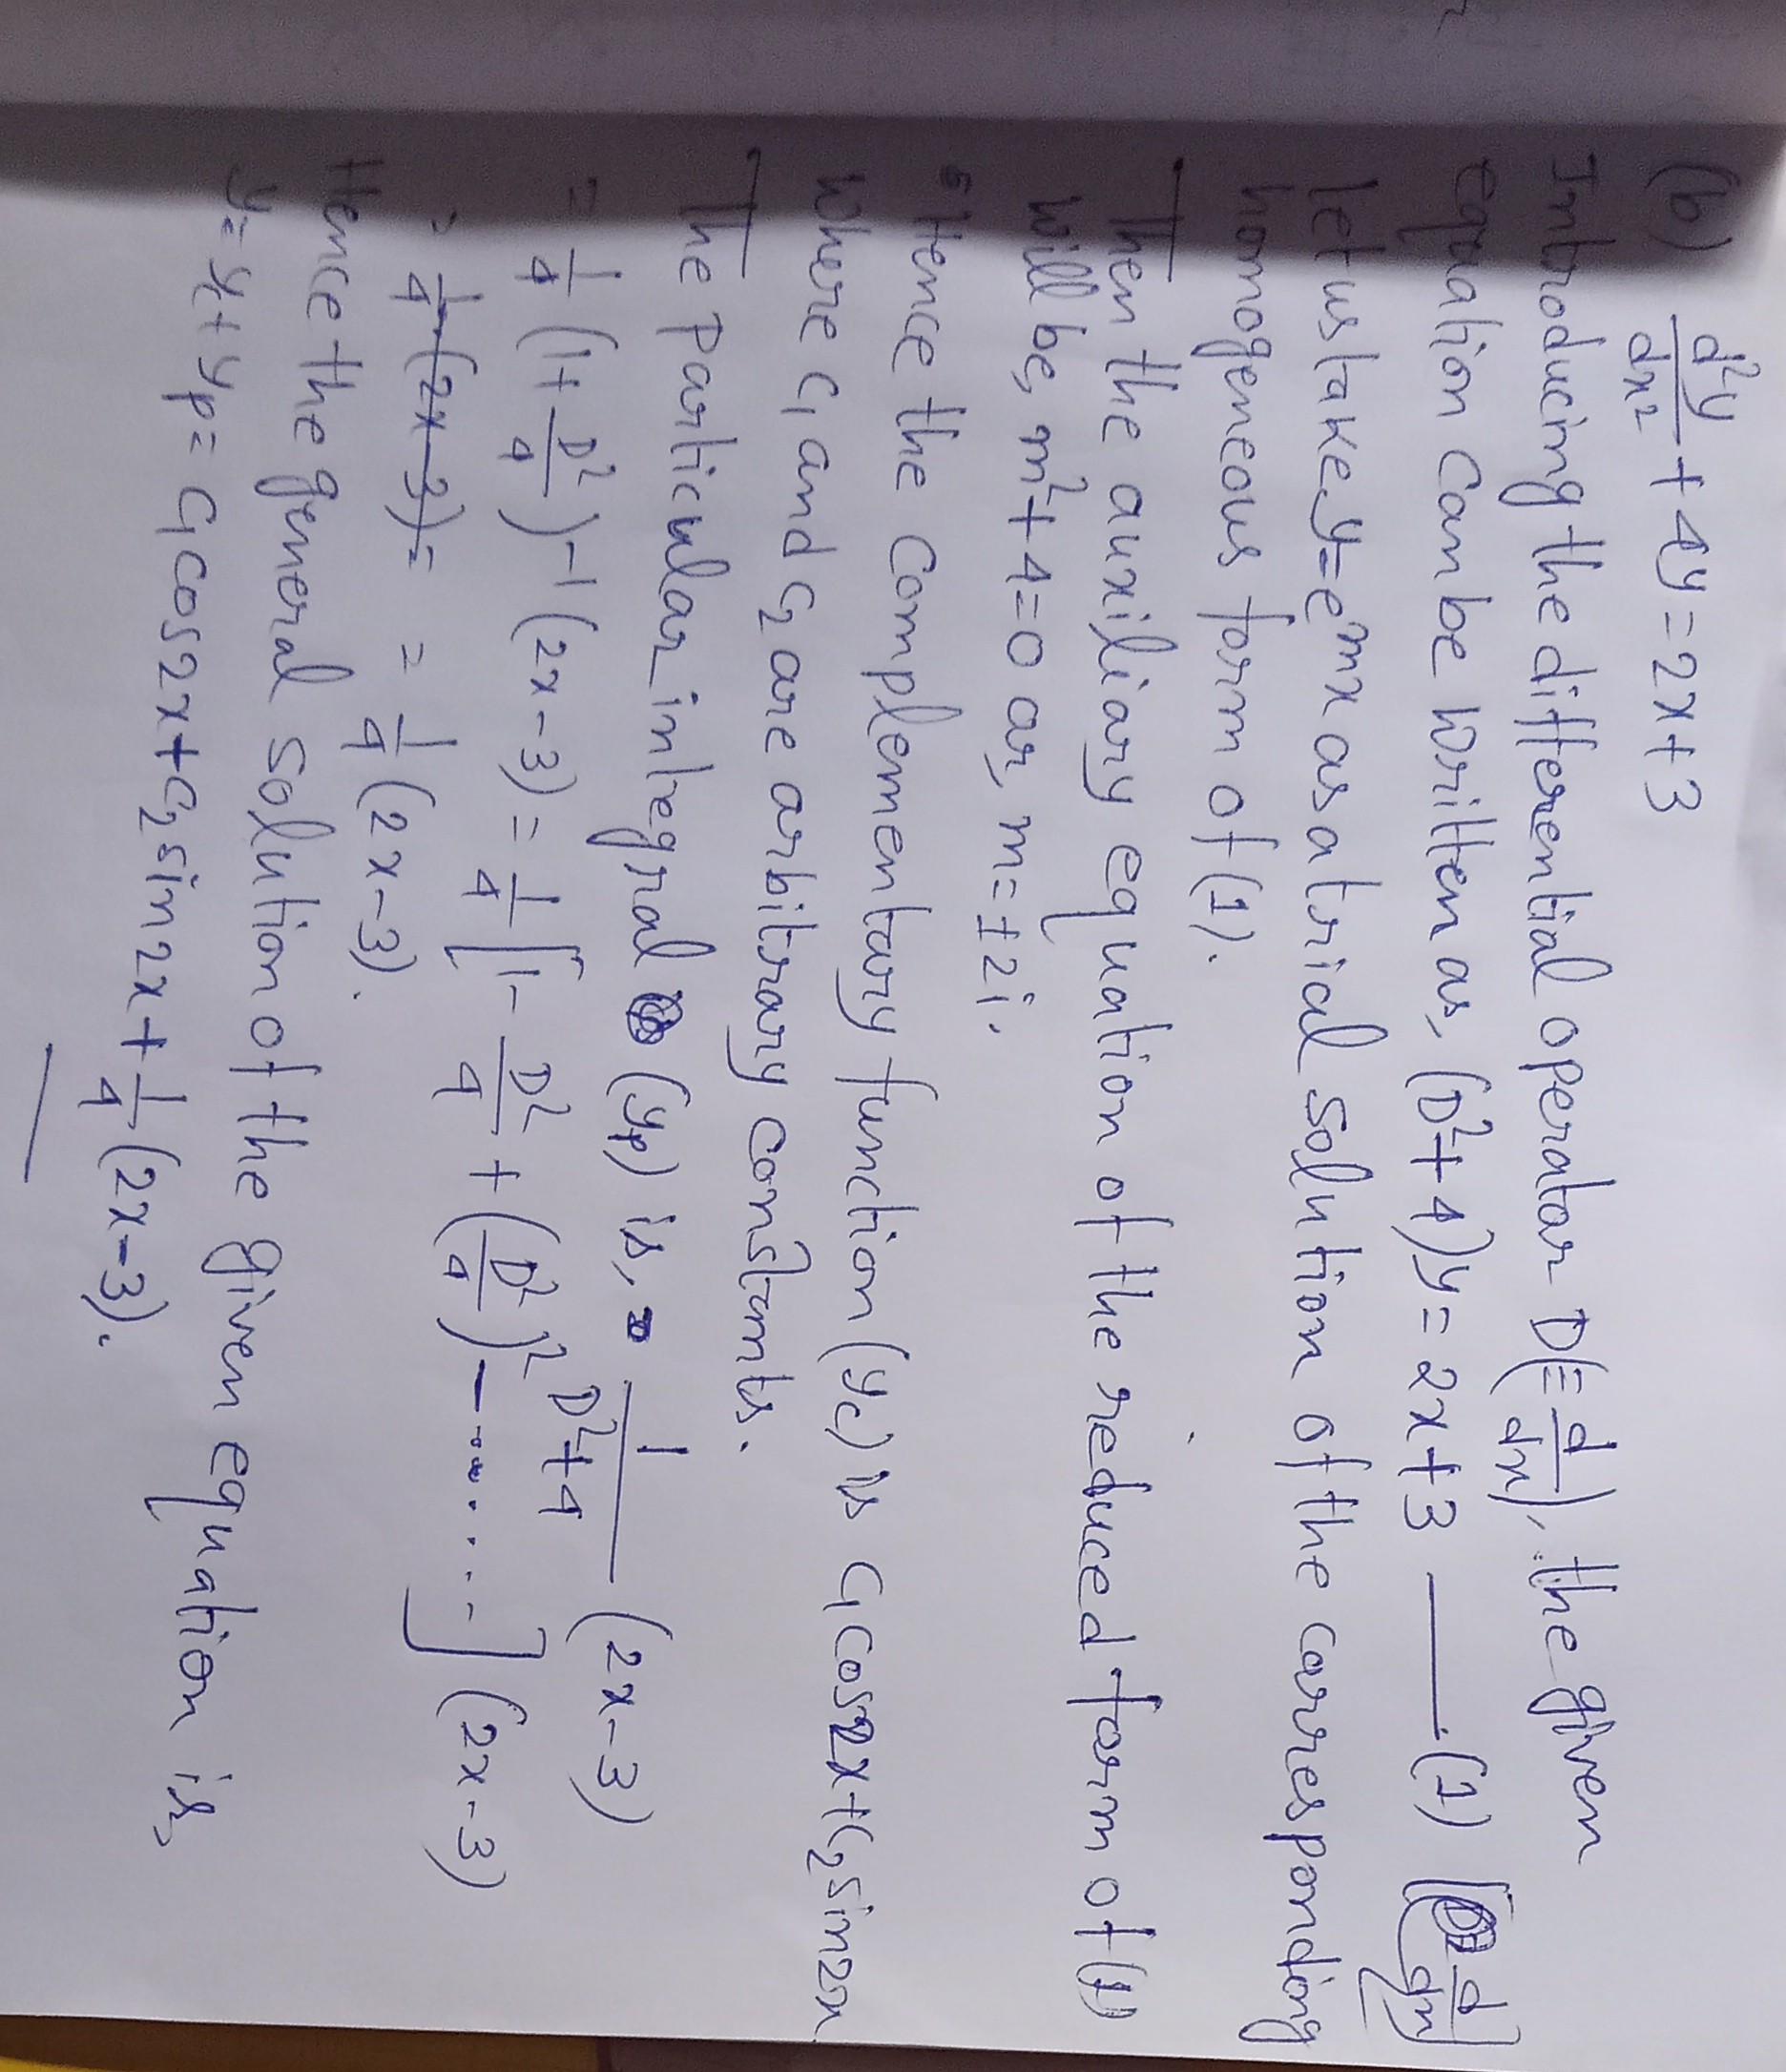 (b) d²y/dx² + 4y = 2x + 3
Introducing the differential operator D(≡ d/dx), the given
equation can be written as, (D² + 4)y = 2x + 3 —— (1)
Let us take, y = e^mx as a trial solution of the corresponding
homogeneous form of (1).
Then the auxiliary equation of the reduced form of (1)
will be, m² + 4 = 0 or, m = ± 2i.
Hence the complementary function (yc) is c₁cos2x + c₂sin2x
where c₁ and c₂ are arbitrary constants.
The particular integral (yp) is, 1/(D² + 4) (2x - 3)
= 1/4 (1 + D²/4)^-1 (2x - 3) = 1/4 [1 - D²/4 + (D²/4)² - ......] (2x - 3)
= 1/4 (2x - 3) = = 1/4 (2x - 3).
Hence the general solution of the given equation is,
y = yc + yp = c₁cos2x + c₂sin2x + 1/4 (2x - 3).